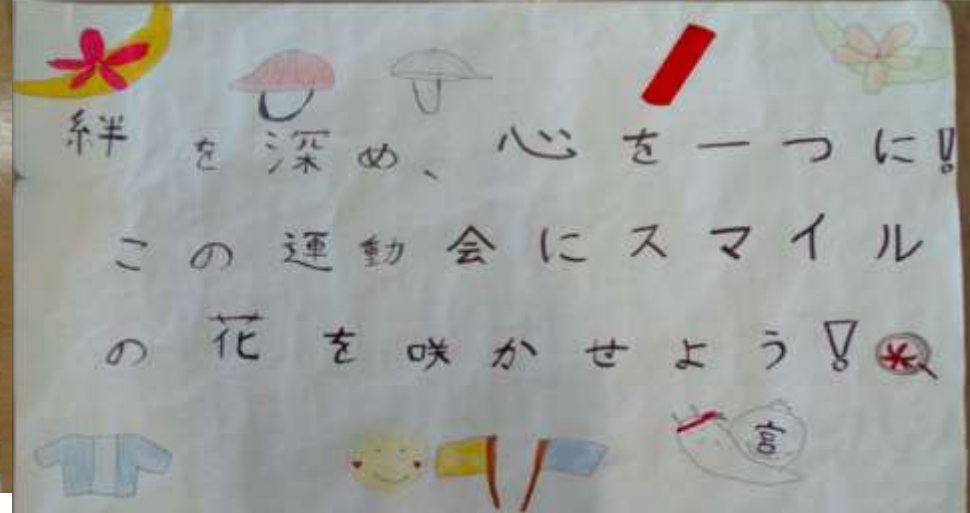 絆を深め、心を一つに!
この運動会にスマイル
の花を咲かせよう!
宮